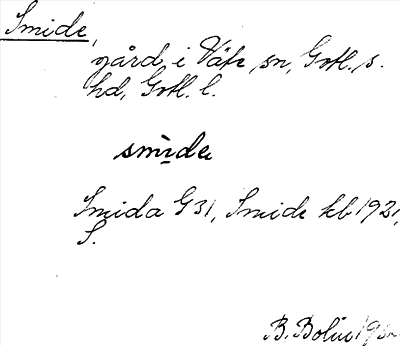 Smide,
gård, i Väte sn, Gotl. s.
hd, Gotl. l.
smìde
Smida G 31, Smide kb 1921,
S.
B. Bolin 19